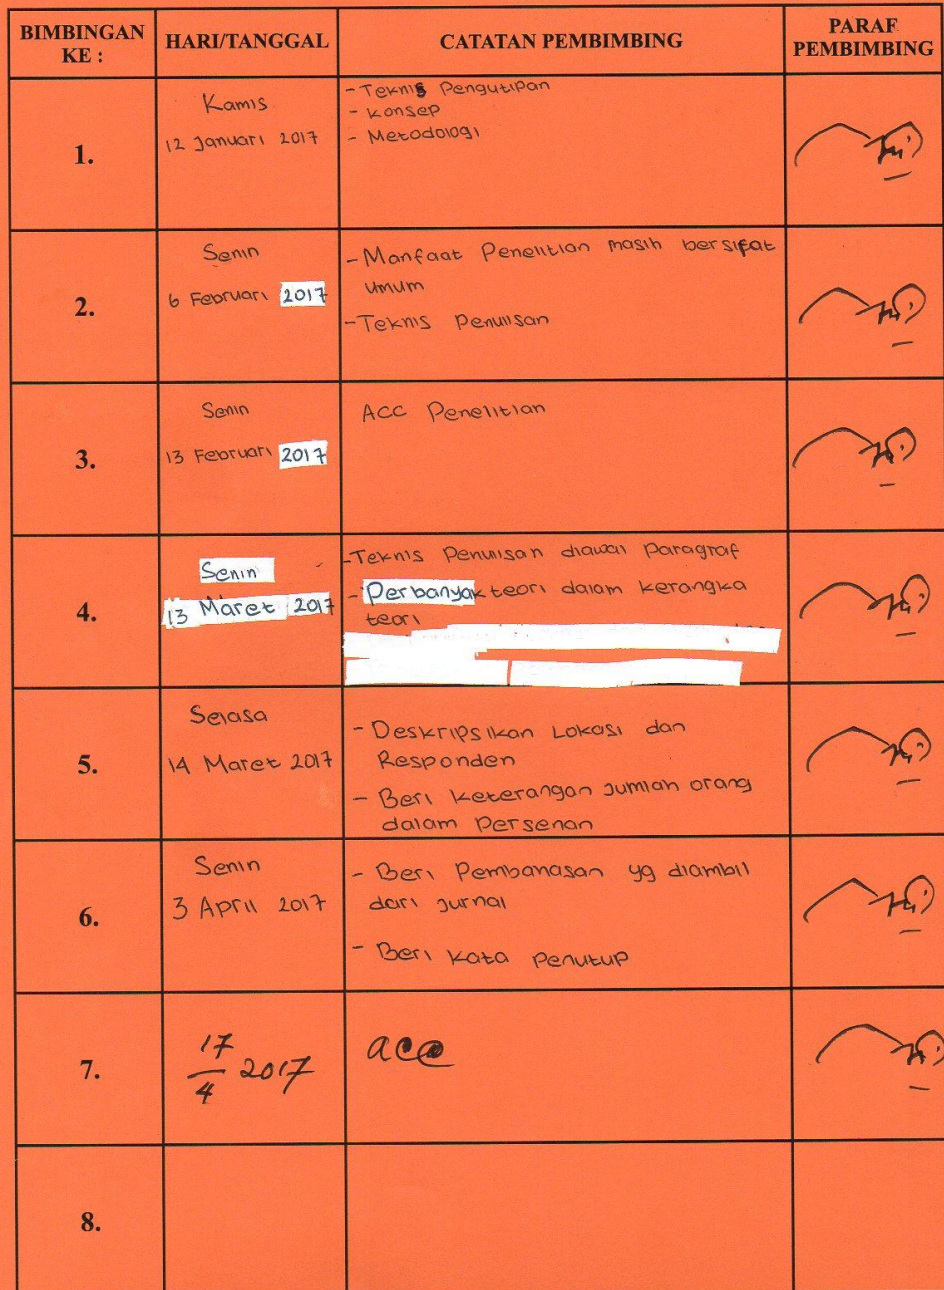 BIMBINGAN KE :
HARI/TANGGAL
CATATAN PEMBIMBING
PARAF PEMBIMBING
1.
Kamis
12 Januari 2017
- Teknis Pengutipan
- Konsep
- Metodologi
2.
Senin
6 Februari 2017
- Manfaat Penelitian masih bersifat
umum
- Teknis Penulisan
3.
Senin
13 Februari 2017
ACC Penelitian
4.
Senin
13 Maret 2017
- Teknis Penulisan diawal Paragraf
- Perbanyak teori dalam kerangka
teori
5.
Selasa
14 Maret 2017
- Deskripsikan Lokasi dan
Responden
- Beri Keterangan Jumlah orang
dalam Persenan
6.
Senin
3 April 2017
- Beri Pembahasan yg diambil
dari Jurnal
- Beri Kata Penutup
7.
17/4 2017
acc
8.